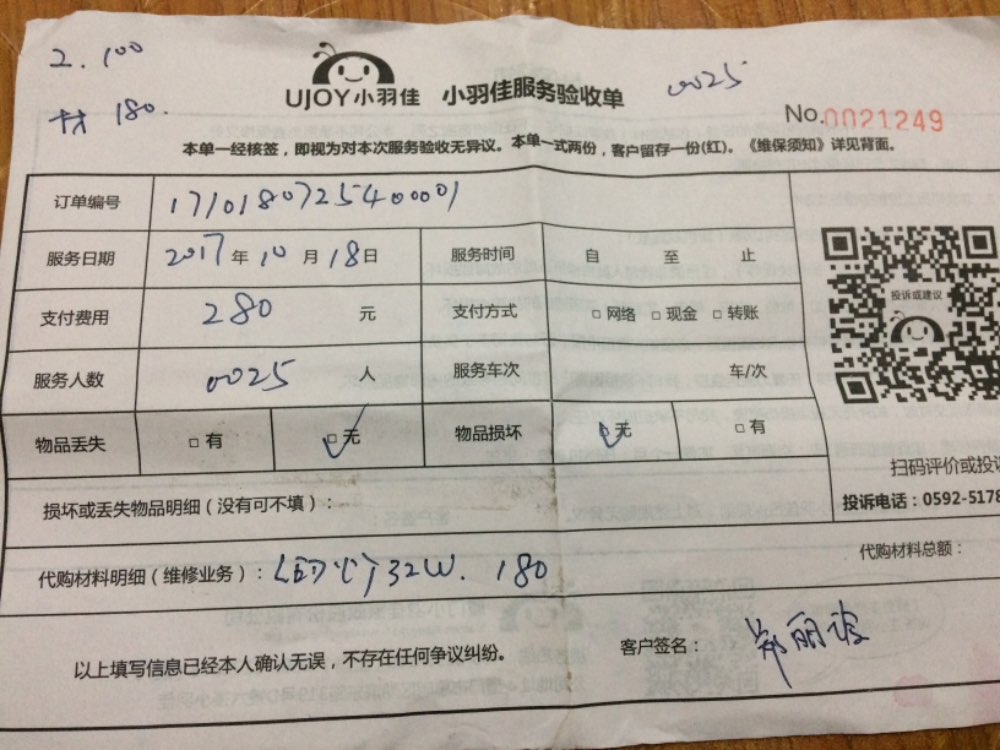 工. 100
材 180.
UJOY小羽佳 小羽佳服务验收单 0025
No.0021249
本单一经核签，即视为对本次服务验收无异议。本单一式两份，客户留存一份(红)。《维保须知》详见背面。
订单编号 171018072540001
服务日期 2017 年 10 月 18 日 服务时间 自 至 止
支付费用 280 元 支付方式 □网络 □现金 □转账
投诉或建议
服务人数 0025 人 服务车次 车/次
物品丢失 □有 □无 物品损坏 □无 □有
扫码评价或投诉
损坏或丢失物品明细（没有可不填）：
投诉电话：0592-5178
代购材料总额：
代购材料明细（维修业务）： 32W. 180
以上填写信息已经本人确认无误，不存在任何争议纠纷。
客户签名：